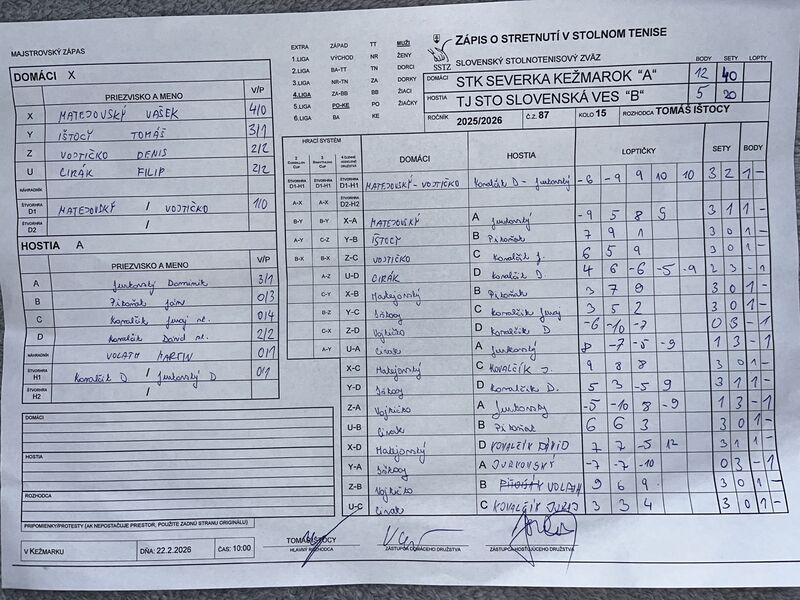 MAJSTROVSKÝ ZÁPAS
EXTRA ZÁPAD TT MUŽI
1.LIGA VÝCHOD NR ŽENY
2.LIGA BA-TT TN DORCI
3.LIGA NR-TN ZA DORKY
4.LIGA ZA-BB BB ŽIACI
5.LIGA PO-KE PO ŽIAČKY
6.LIGA BA KE
SSTZ
ZÁPIS O STRETNUTÍ V STOLNOM TENISE
SLOVENSKÝ STOLNOTENISOVÝ ZVÄZ
BODY SETY LOPTY
DOMÁCI STK SEVERKA KEŽMAROK "A" 12 40
HOSTIA TJ STO SLOVENSKÁ VES "B" 5 20
ROČNÍK 2025/2026 Č.Z. 87 KOLO 15 ROZHODCA TOMÁŠ IŠTOCY
DOMÁCI X
PRIEZVISKO A MENO V/P
X MATEJOVSKÝ VAŠEK 4/0
Y IŠTOCY TOMÁŠ 3/1
Z VOJTIČKO DENIS 2/2
U CIRÁK FILIP 2/2
NÁHRADNÍK
ŠTVORHRA D1 MATEJOVSKÝ / VOJTIČKO 1/0
D2 /
HOSTIA A
PRIEZVISKO A MENO V/P
A Jurkovský Dominik 3/1
B Pikoňak Ján 0/3
C Kovalčík Juraj st. 0/4
D Kovalčík Dávid ml. 2/2
NÁHRADNÍK VOLATH MARTIN 0/1
ŠTVORHRA H1 Kovalčík D / Jurkovský D 0/1
H2 /
DOMÁCI
HOSTIA
ROZHODCA
PRIPOMIENKY/PROTESTY (AK NEPOSTAČUJE PRIESTOR, POUŽITE ZADNÚ STRANU ORIGINÁLU)
V KEŽMARKU DŇA: 22.2.2026 ČAS: 10:00
HRACÍ SYSTÉM DOMÁCI HOSTIA LOPTIČKY SETY BODY
ŠTVORHRA D1-H1 ŠTVORHRA D1-H1 ŠTVORHRA D1-H1 MATEJOVSKÝ - VOJTIČKO Kovalčík D - Jurkovský -6 -9 9 10 10 3 2 1 -
A-X A-X ŠTVORHRA D2-H2
B-Y B-Y X-A MATEJOVSKÝ A Jurkovský -9 5 8 5 3 1 1 -
A-Y C-Z Y-B IŠTOCY B Pikoňak 7 9 1 3 0 1 -
B-X B-X Z-C VOJTIČKO C Kovalčík J. 6 5 9 3 0 1 -
A-Z U-D CIRÁK D Kovalčík D. 4 6 -6 -5 -9 2 3 - 1
C-Y X-B Matejovský B Pikoňak 3 7 9 3 0 1 -
B-Z Y-C Ištocy C Kovalčík Juraj 3 5 2 3 0 1 -
C-X Z-D Vojtičko D Kovalčík D -6 -10 -7 0 3 - 1
A-Y U-A Cirák A Jurkovský 8 -7 -5 -9 1 3 - 1
X-C Matejovský C KOVALČÍK J. 9 8 8 3 0 1 -
Y-D Ištocy D Kovalčík D. 5 3 -5 9 3 1 1 -
Z-A Vojtičko A Jurkovský -5 -10 8 -9 1 3 - 1
U-B Cirák B Pikoňak 6 6 3 3 0 1 -
X-D Matejovský D KOVALČÍK DÁVID 7 7 -5 12 3 1 1 -
Y-A Ištocy A JURKOVSKÝ -7 -7 -10 0 3 - 1
Z-B Vojtičko B VOLATH 9 6 9 3 0 1 -
U-C Cirák C KOVALČÍK JURAJ 3 3 4 3 0 1 -
TOMÁŠ IŠTOCY
HLAVNÝ ROZHODCA ZÁSTUPCA DOMÁCEHO DRUŽSTVA ZÁSTUPCA HOSŤUJÚCEHO DRUŽSTVA